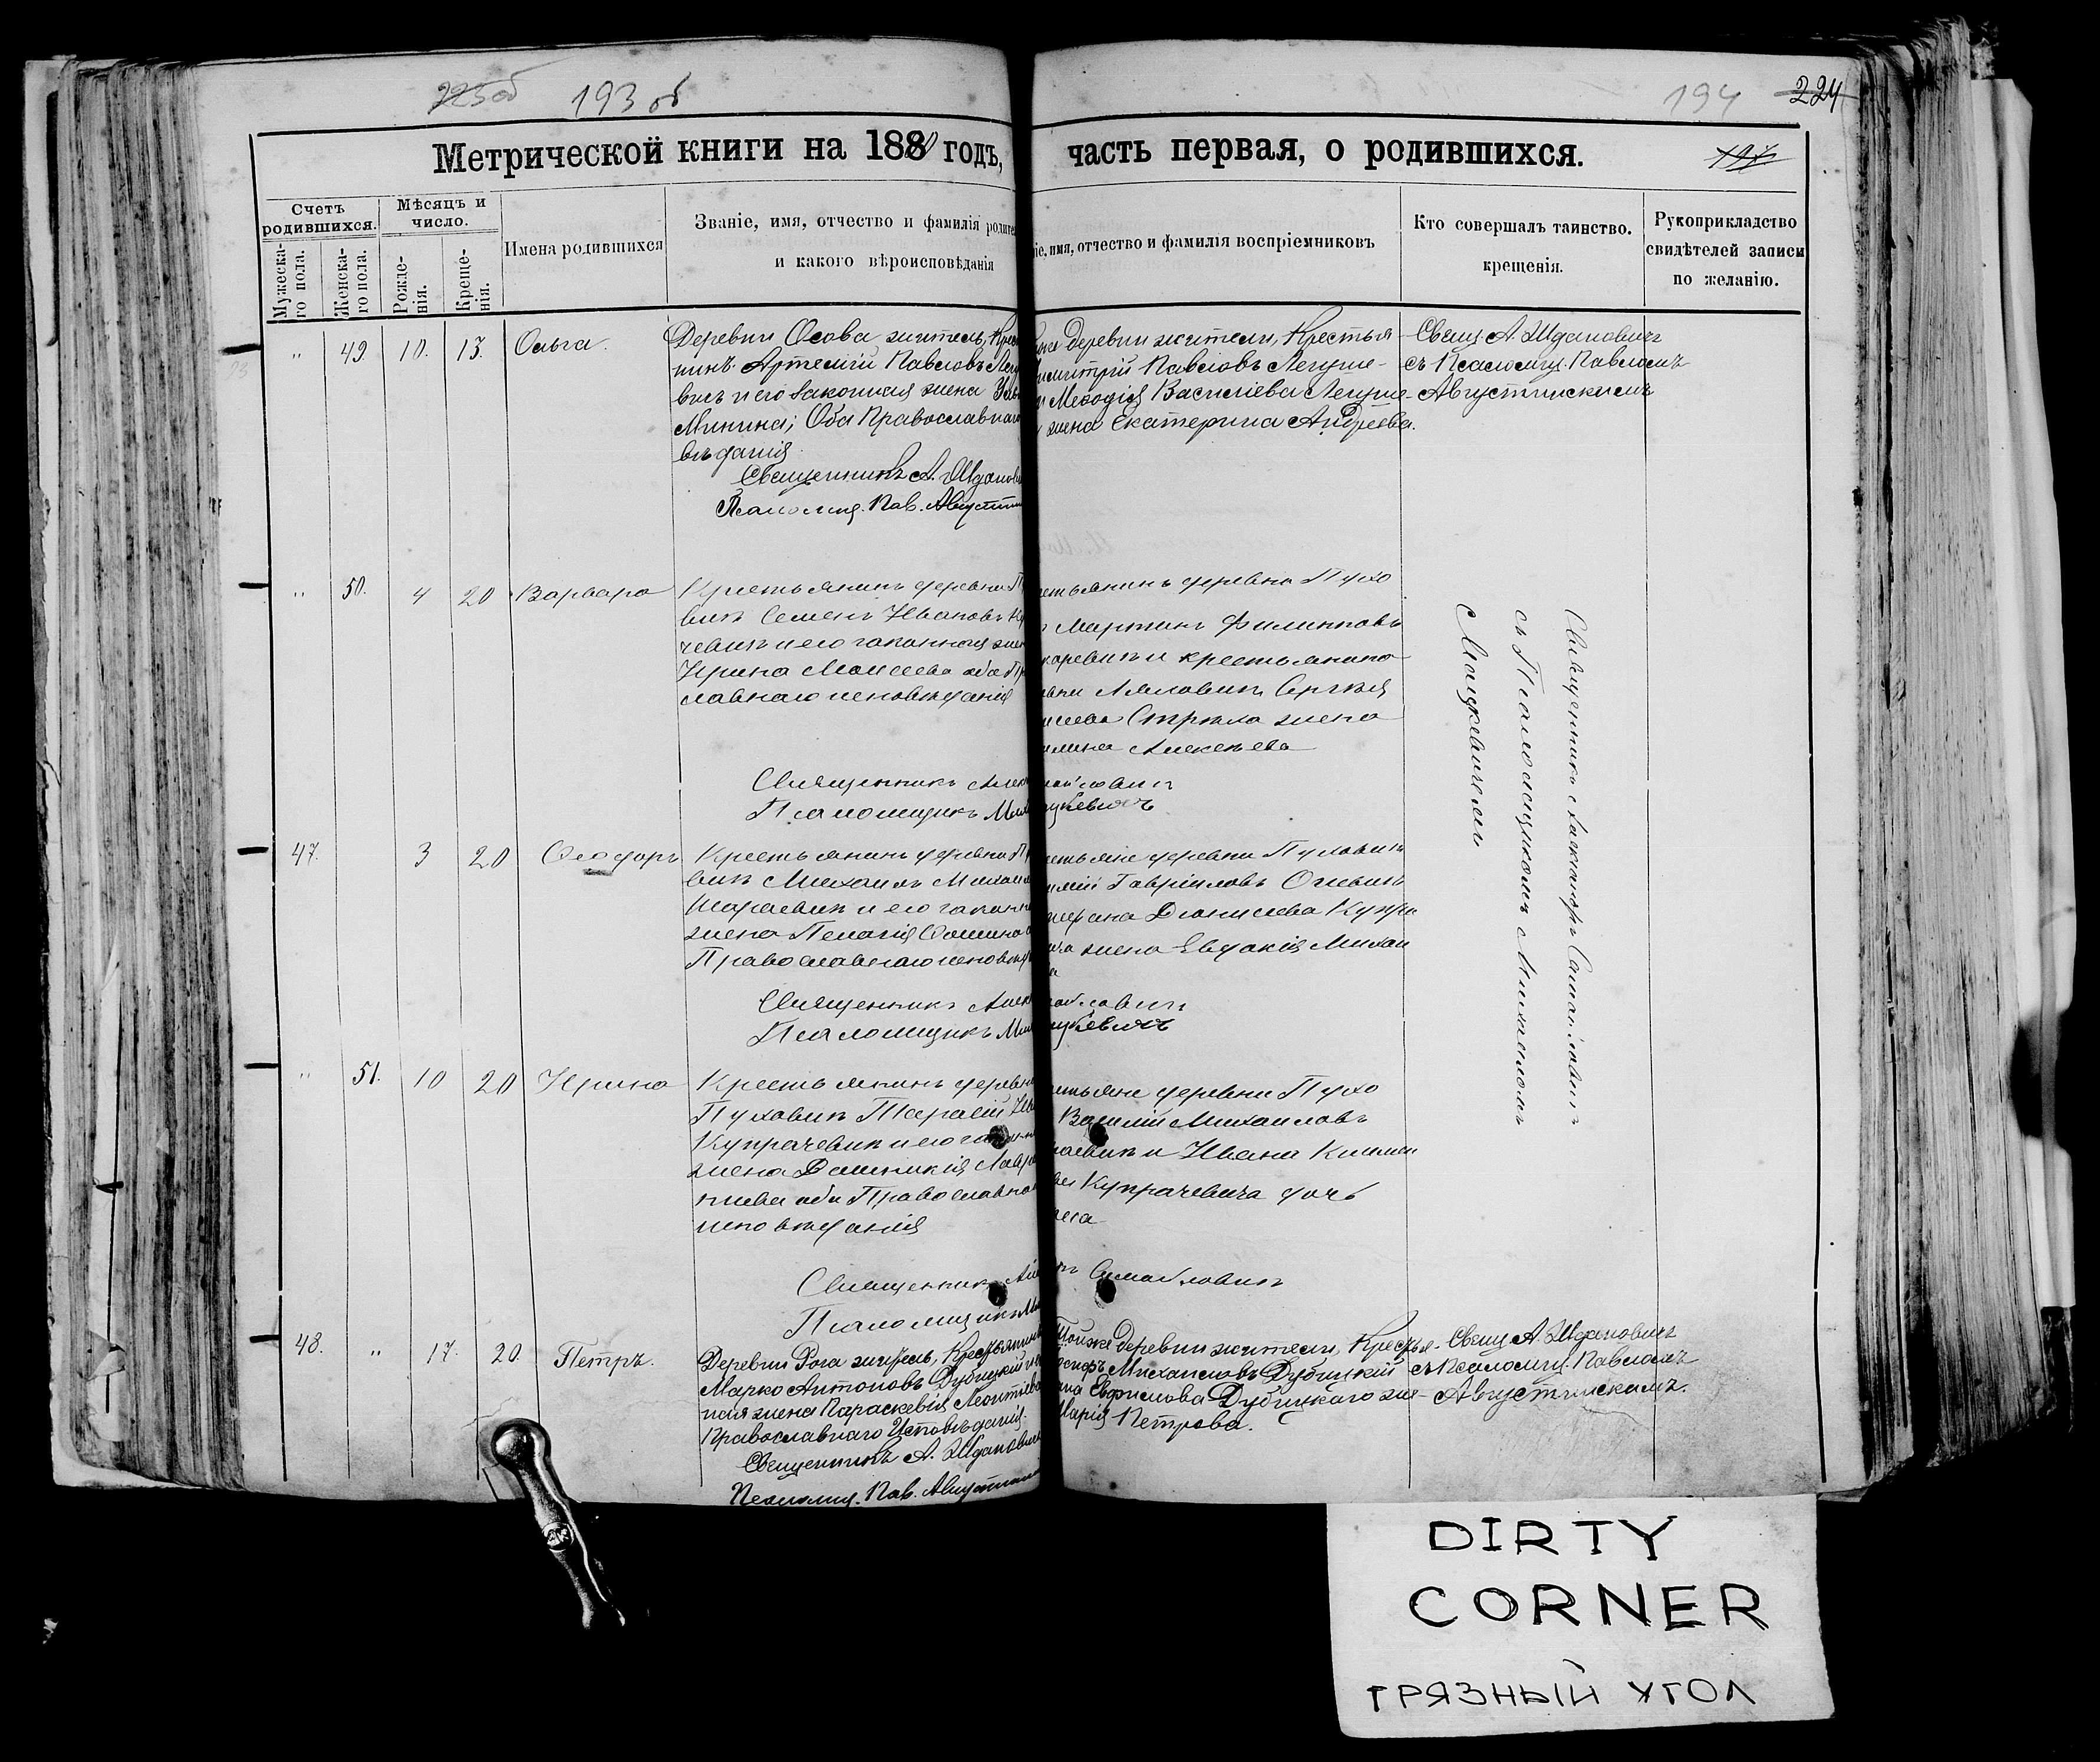 223об 193 об
194 224
Метрической книги на 1880 годъ, часть первая, о родившихся.
Счетъ родившихся.
Мужеска-го пола.
Женска-го пола.
Мѣсяцъ и число.
Рожде-нія.
Креще-нія.
Имена родившихся
Званіе, имя, отчество и фамилія родите
и какого вѣроисповѣданія
іе, имя, отчество и фамилія воспріемниковъ
Кто совершалъ таинство.
крещенія.
Рукоприкладство
свидѣтелей записи
по желанію.
" 49 10. 13. Ольга.
Деревни Осова житель, Крес
нинъ Артемій Павловъ
вичъ и его законная жена
Минина; Оба Православнаго
вѣданія
Священникъ А. Ждановичъ
Псаломщ. Пав. Августин
же деревни жители, Крестья
Димитрій Павловъ
и Меѳодія Василіева
жена Екатерина Андреева.
Свящ. А. Ждановичъ
съ Псаломщ. Павломъ
Августинскимъ
" 50. 4 20 Варвара
Крестьянинъ деревни П
вичъ Семенъ Ивановъ
чевичъ и его законная жен
Ирина Моисеева оба Пр
славнаго исповѣданія
Священникъ Алек
Псаломщикъ Мих
естьянинъ деревни Пухо
Мартинъ Филипповъ
каревичъ и крестьянина
Лаловичъ Сергѣя
Стрѣла жена
Алексѣева
цкевичъ
Священникъ Александръ Самайловичъ
съ Псаломщикомъ Михаиломъ
Мацкевичемъ
47. 3 20 Ѳеодоръ
Крестьянинъ деревни П
вичъ Михаилъ Михаил
Шараевичъ и его законн
жена Пелагія Ѳомина о
Православнаго исповѣд
Священникъ Алек
Псаломщикъ Мих
естьяне деревни Пуховичъ
Гавріиловъ
Діонисіева Купра
жена Евдокія Михаи
цкевичъ
" 51. 10 20 Ирина
Крестьянинъ деревни
Пуховичъ Тарасій Ив
Купрачевичъ и его законн
жена Домникія Лавре
тіева оба Православна
исповѣданія
Священникъ Але
Псаломщикъ Ми
естьяне деревни Пухо
Василій Михаиловъ
раевичъ и Ивана
Купрачевича дочь
ръ Самайловичъ
48. " 17. 20. Петръ.
Деревни Рога житель, Крестьянинъ
Марко Антоновъ Дубицкій и
ная жена Параскевія Леонтіева
Православнаго Исповѣданія.
Священникъ А. Ждановичъ
Псаломщ. Пав. Августин
Тойже деревни жители, Крестья
Михаиловъ Дубицкій
Ефимова Дубицкаго же
Марія Петрова.
Свящ. А. Ждановичъ
съ Псаломщ. Павломъ
Августинскимъ.
DIRTY
CORNER
ГРЯЗНЫЙ УГОЛ